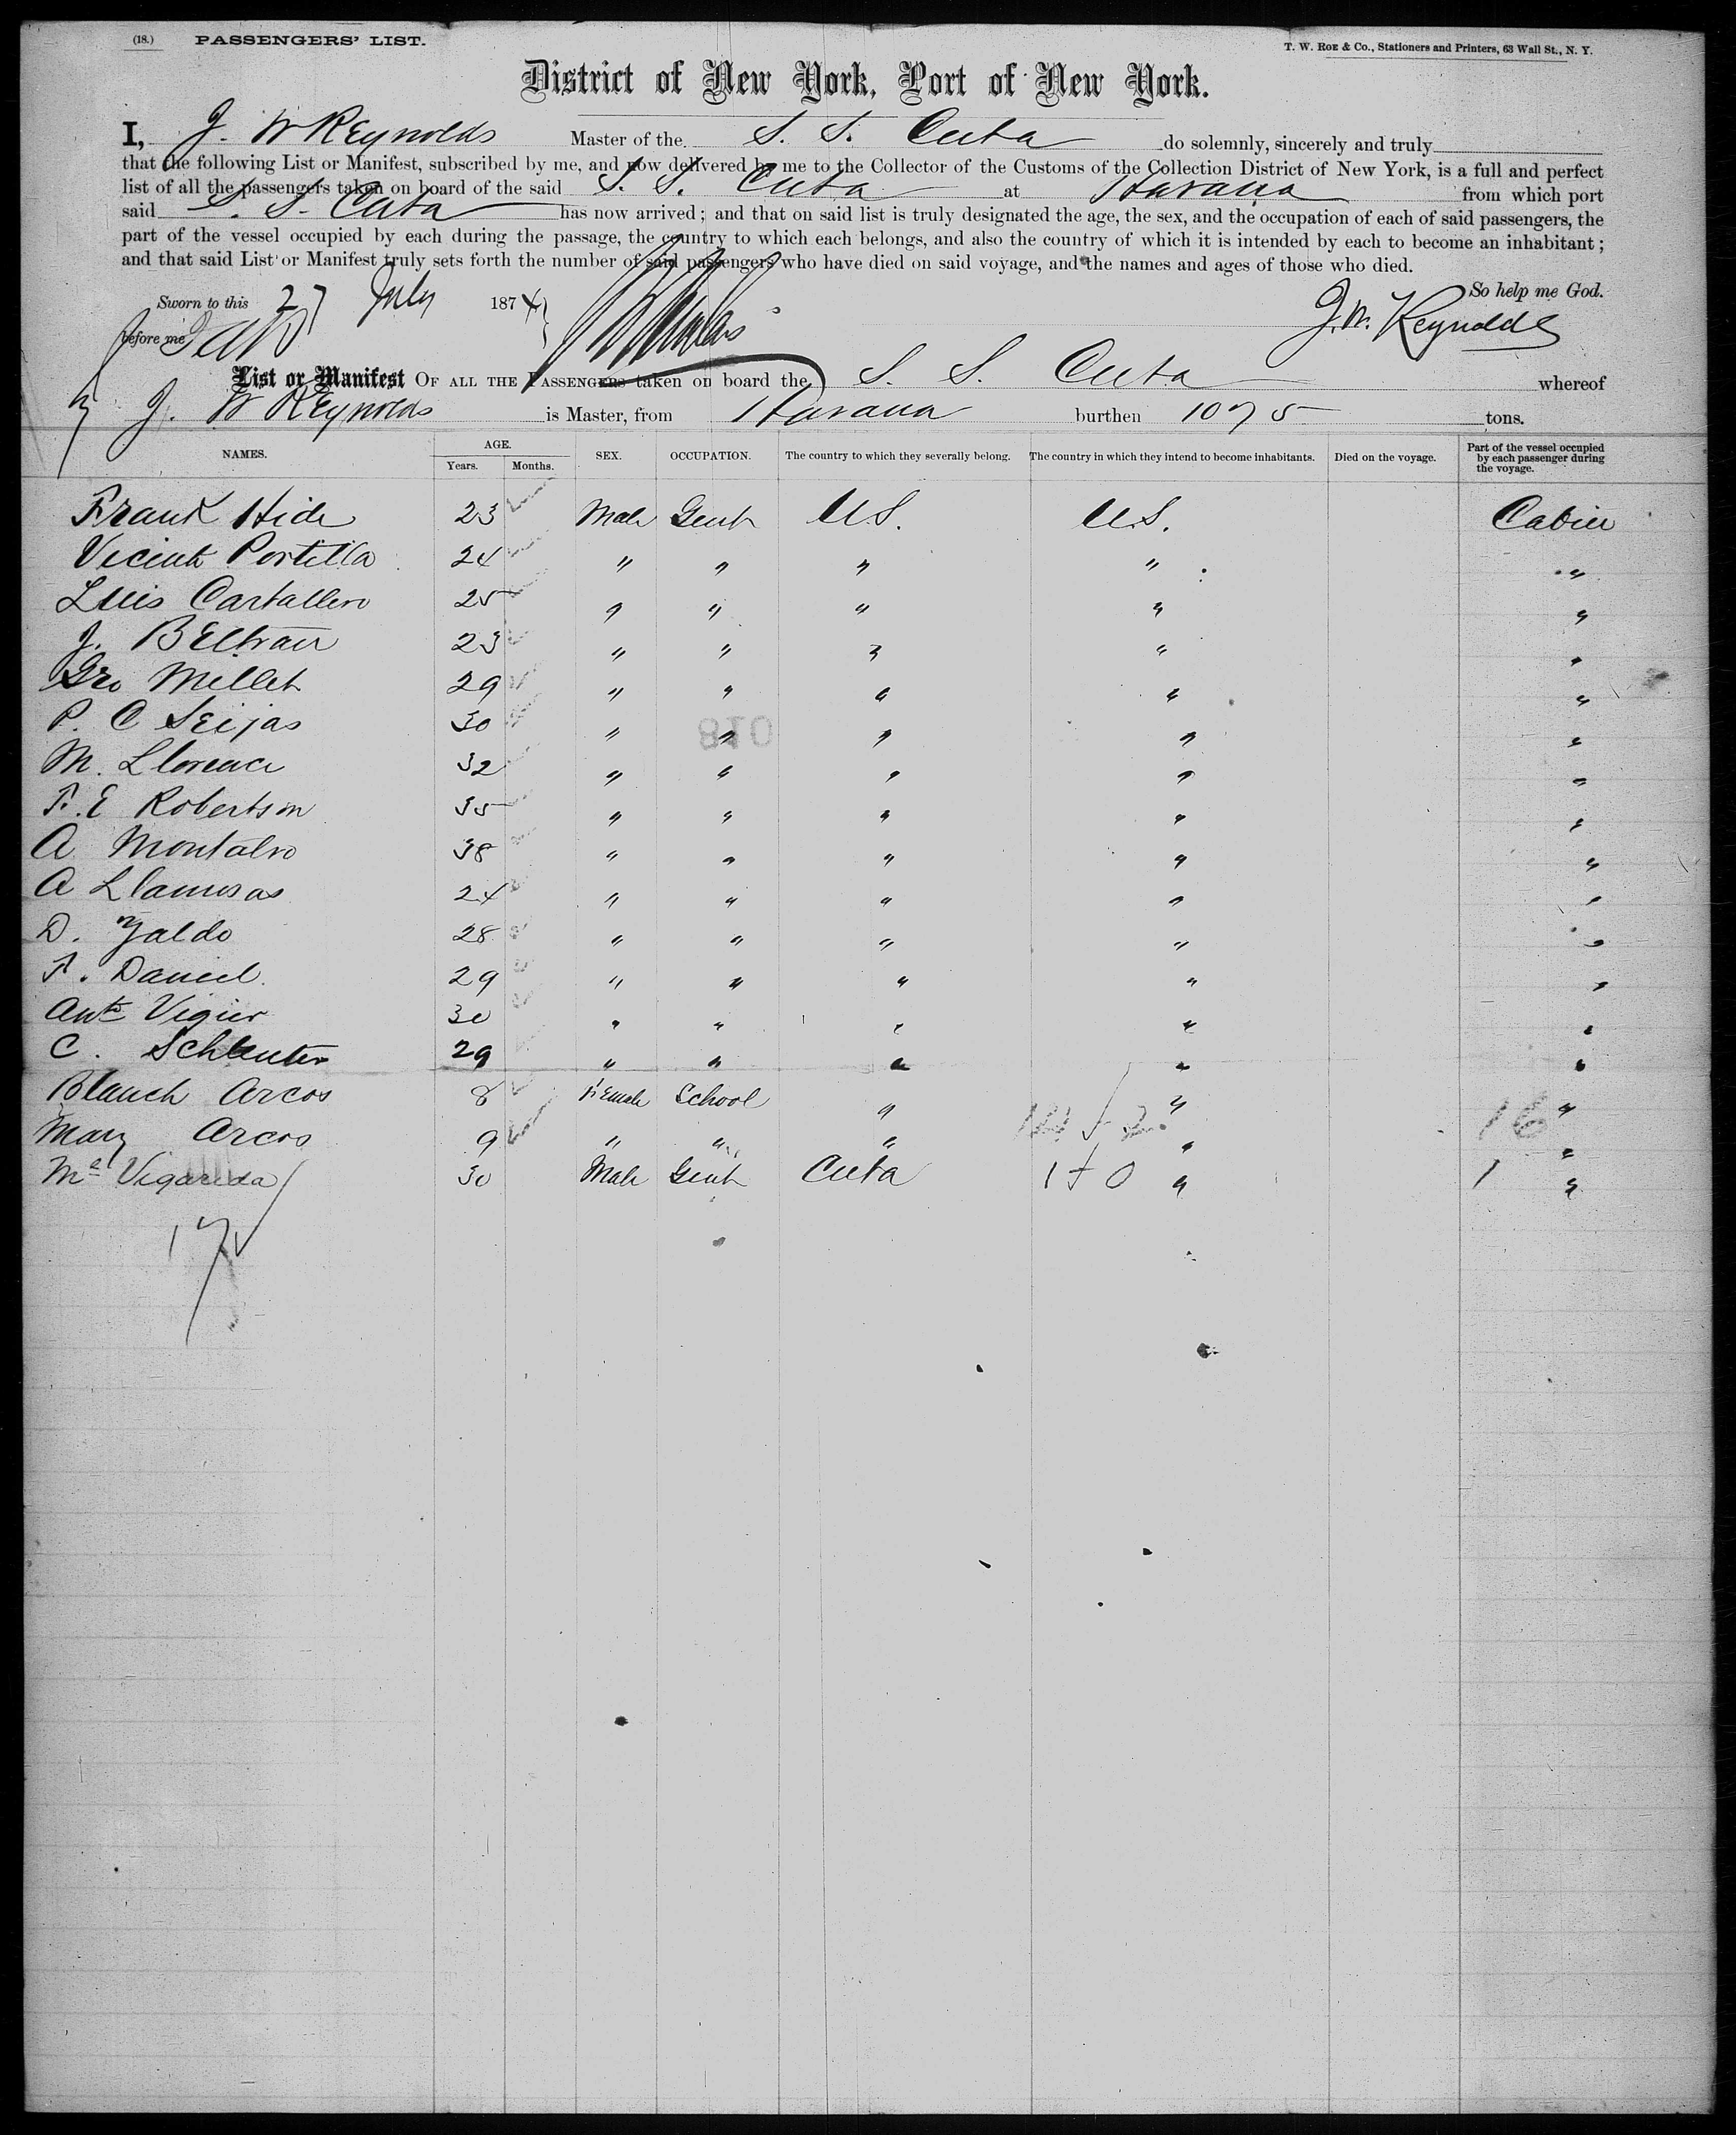 (18.) PASSENGERS' LIST. T. W. ROE & Co., Stationers and Printers, 63 Wall St., N. Y.
District of New York, Port of New York.
I, J. W Reynolds Master of the S. S. Cuba do solemnly, sincerely and truly
that the following List or Manifest, subscribed by me, and now delivered by me to the Collector of the Customs of the Collection District of New York, is a full and perfect
list of all the passengers taken on board of the said S. S. Cuba at Havana from which port
said S. S. Cuba has now arrived; and that on said list is truly designated the age, the sex, and the occupation of each of said passengers, the
part of the vessel occupied by each during the passage, the country to which each belongs, and also the country of which it is intended by each to become an inhabitant;
and that said List or Manifest truly sets forth the number of said passengers who have died on said voyage, and the names and ages of those who died.
So help me God.
Sworn to this 27 July 1874 J. W. Reynolds
before me
List or Manifest OF ALL THE PASSENGERS taken on board the S. S. Cuba whereof
J. W Reynolds is Master, from Havana burthen 1075 tons.
NAMES. AGE. Years. Months. SEX. OCCUPATION. The country to which they severally belong. The country in which they intend to become inhabitants. Died on the voyage. Part of the vessel occupied by each passenger during the voyage.
Frank Hide 23 Male Gent U.S. U.S. Cabin
Vicente Portilla 24 " " " " "
Luis Carballero 25 " " " " "
J. Beltran 23 " " " " "
Geo Millet 29 " " " " "
P. C Seijas 30 " " " " "
M. Llorence 32 " " " " "
F. E Robertson 35 " " " " "
A Montalvo 38 " " " " "
A Llamosas 24 " " " " "
D. Zaldo 28 " " " " "
F. Daniel 29 " " " " "
Anto Vigier 30 " " " " "
C. Schlunter 29 " " " " "
Blanch Arcos 8 Female School " " "
Mary Arcos 9 " " " " "
30 Male Gent Cuba 1 + 0 " 1 "
16
17